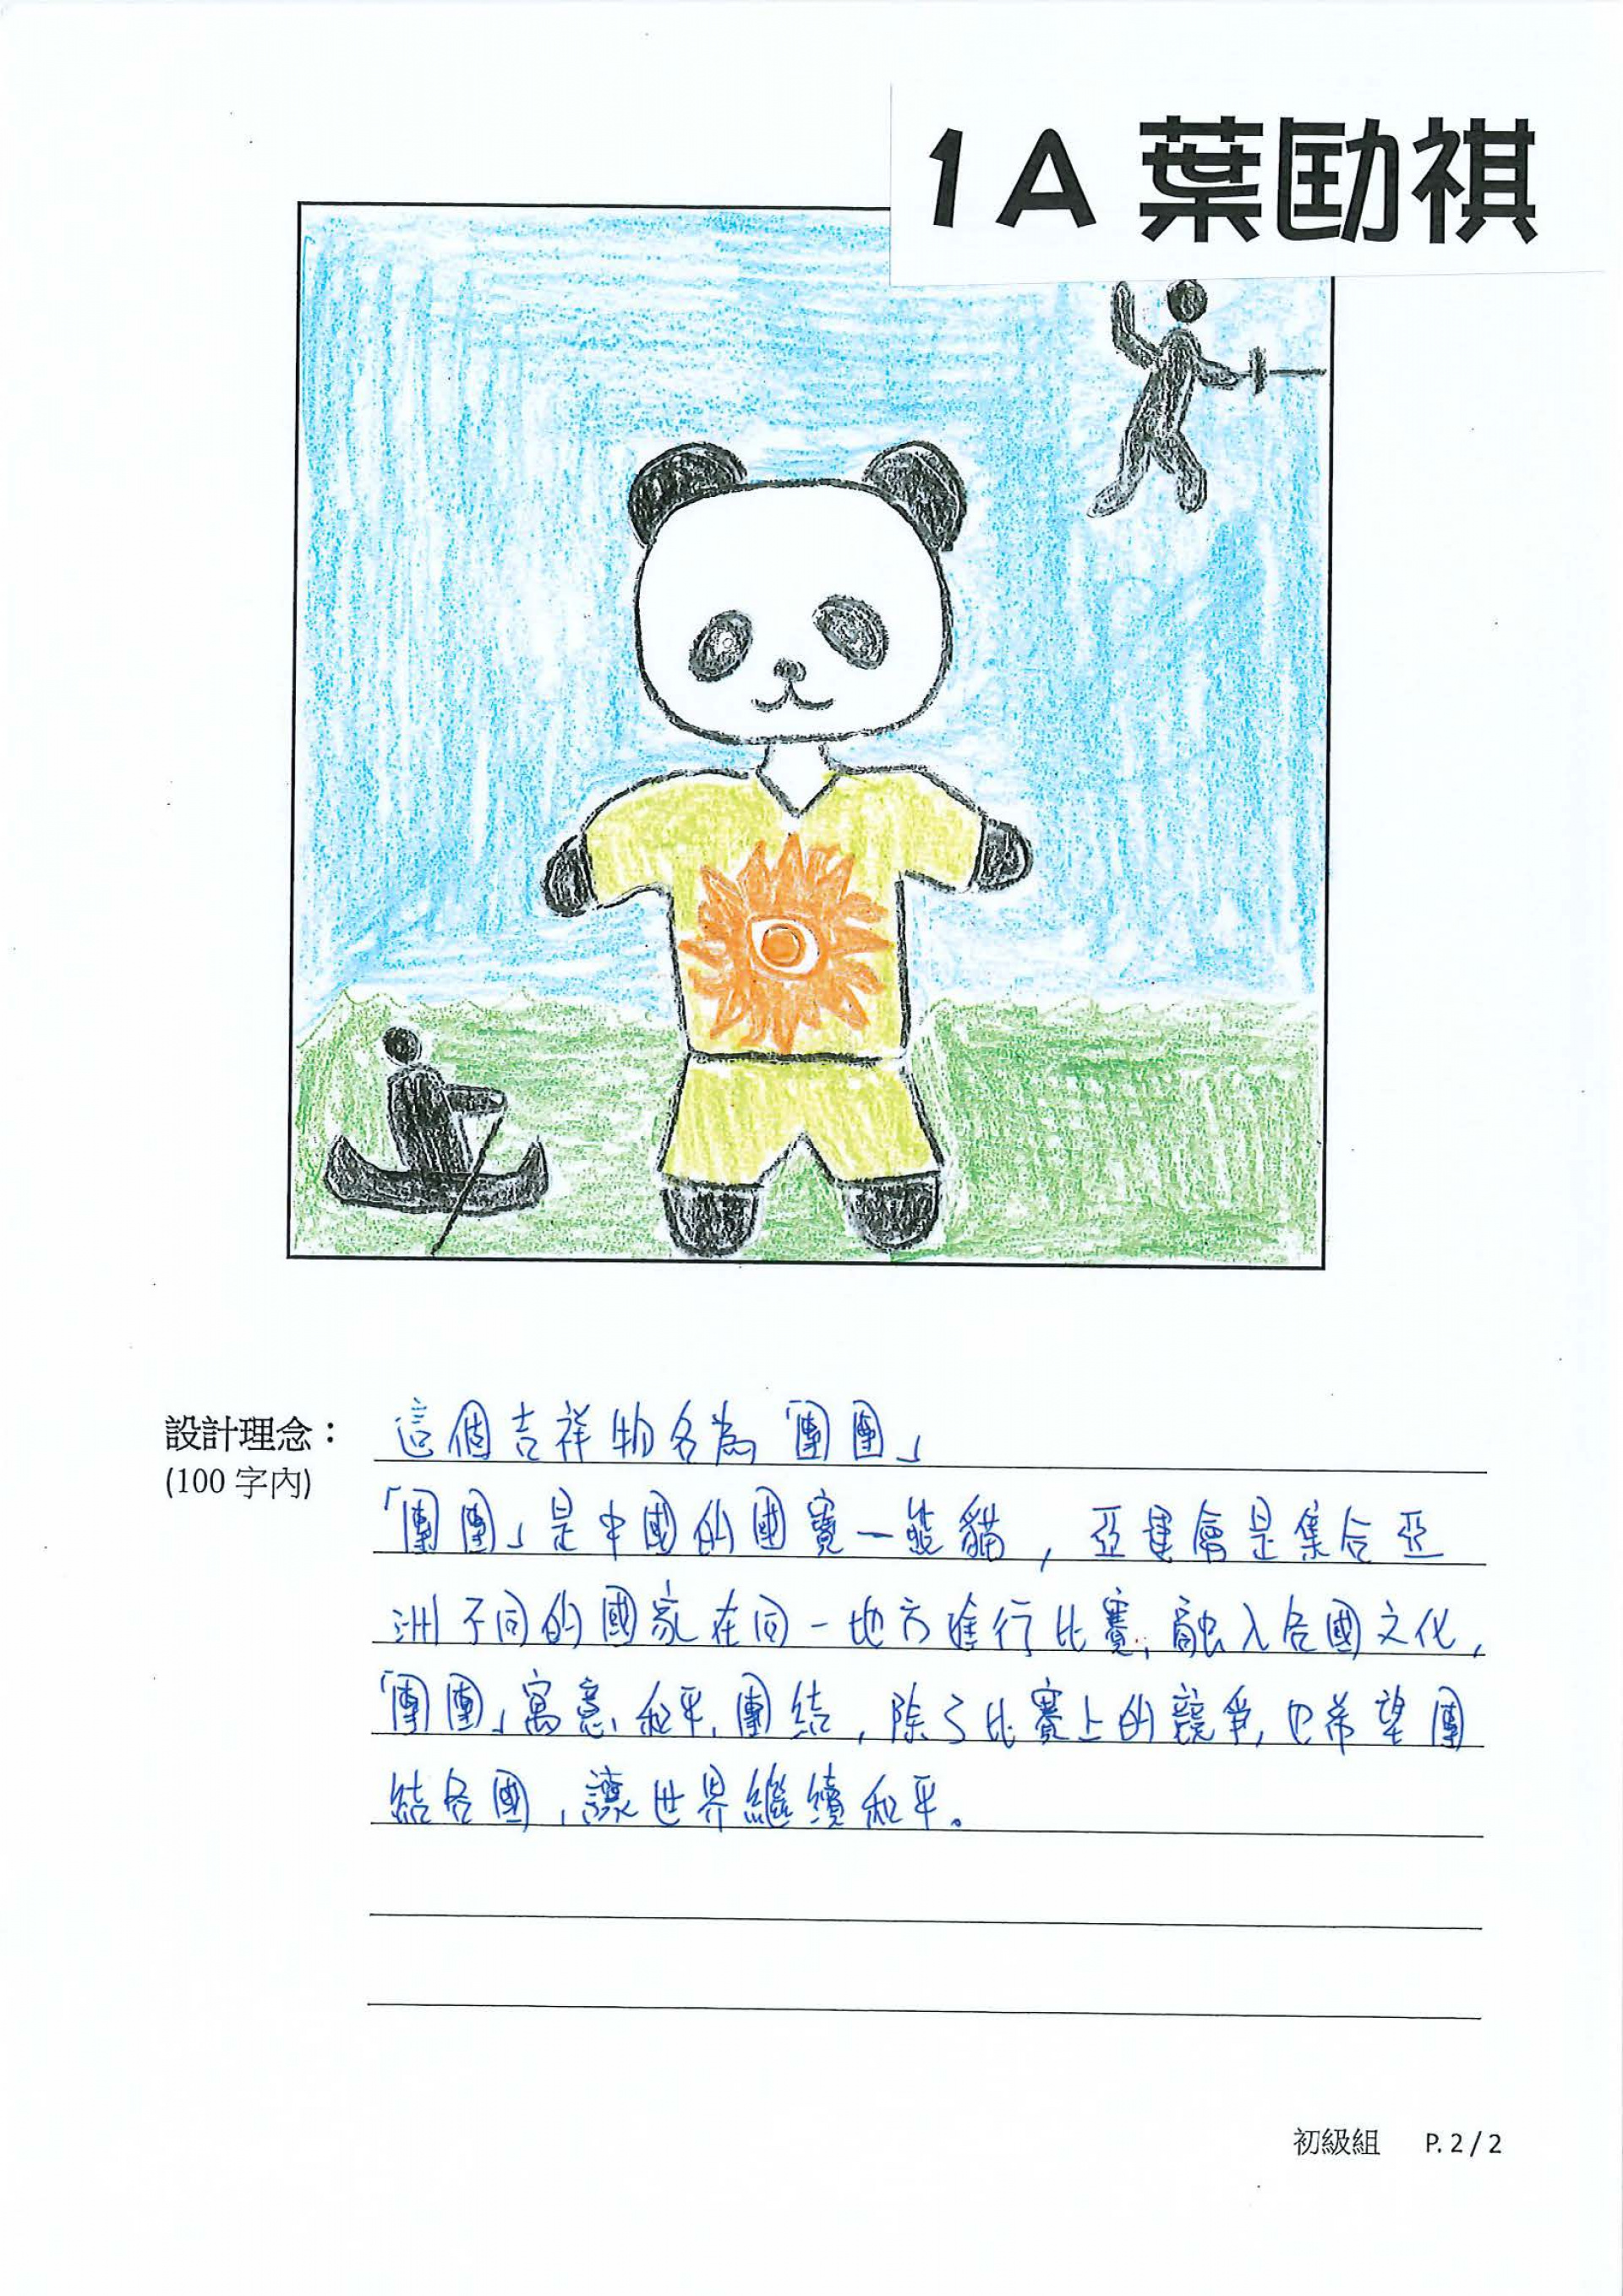 1A 葉劻祺
設計理念：
(100 字內)
這個吉祥物名為「團團」
「團團」是中國的國寶一熊貓，亞運會是集合亞
洲不同的國家在同一地方進行比賽，融入各國文化，
「團團」寓意、和平、團結，除了比賽上的競爭，也希望團
結各國，讓世界繼續和平。
初級組 P. 2 / 2